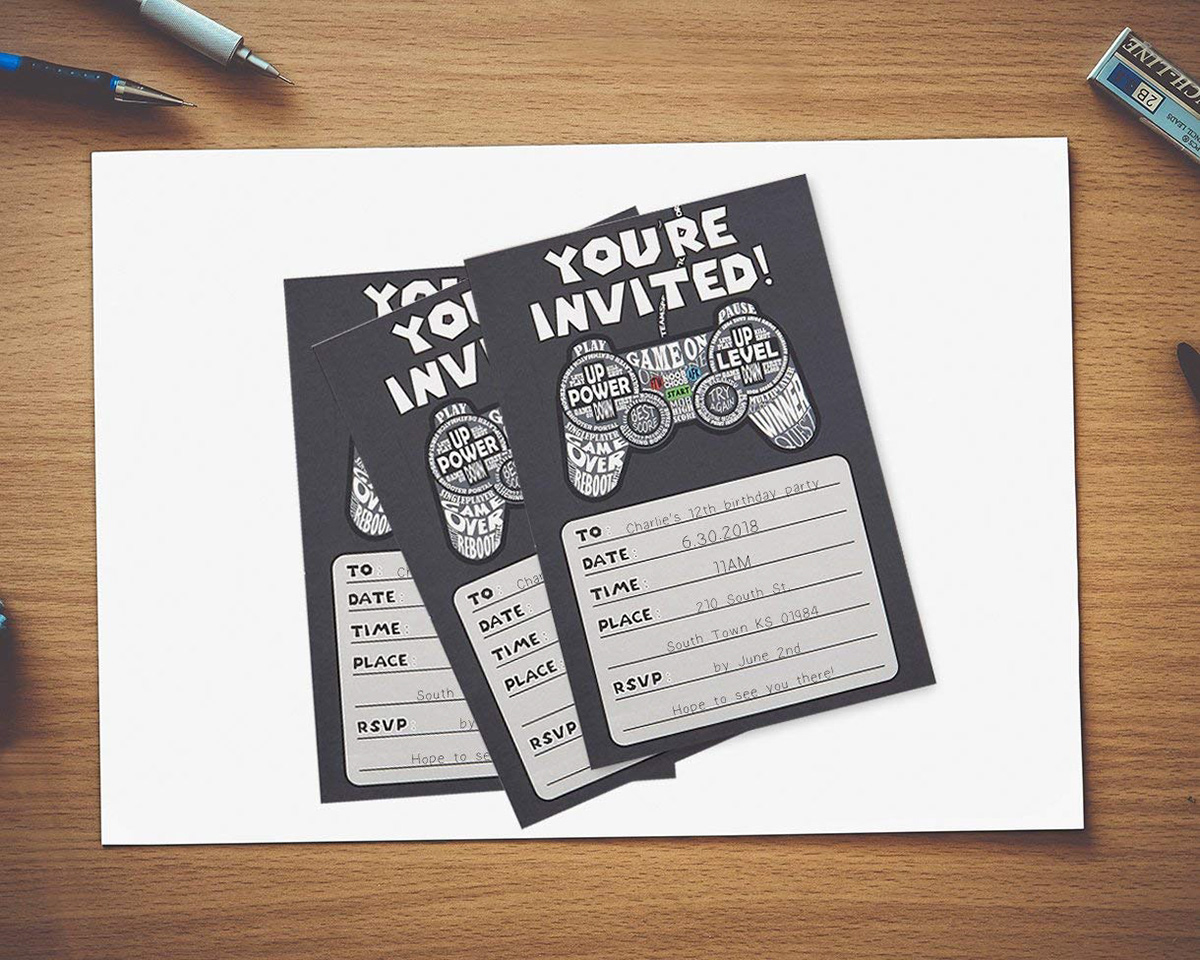 YOU'RE
INVITED!
PLAY
PAUSE
GAME ON
UP
POWER
DOWN
UP
LEVEL
DOWN
START
BEST
SCORE
TRY
AGAIN
SINGLEPLAYER
GAME
OVER
REBOOT
WINNER
TO: Charlie's 12th birthday party
DATE: 6.30.2018
TIME: 11AM
PLACE: 210 South St,
South Town KS 01984
RSVP: by June 2nd
Hope to see you there!
YOU
INV
PLAY
UP
POWER
DOWN
SINGLEPLAYER
GAME
OVER
REBOOT
TO: Char
DATE:
TIME:
PLACE:
RSVP
YOU
OVER
REBOOT
TO: C
DATE:
TIME:
PLACE:
South
RSVP: by
Hope to se
CH-LINE
2B